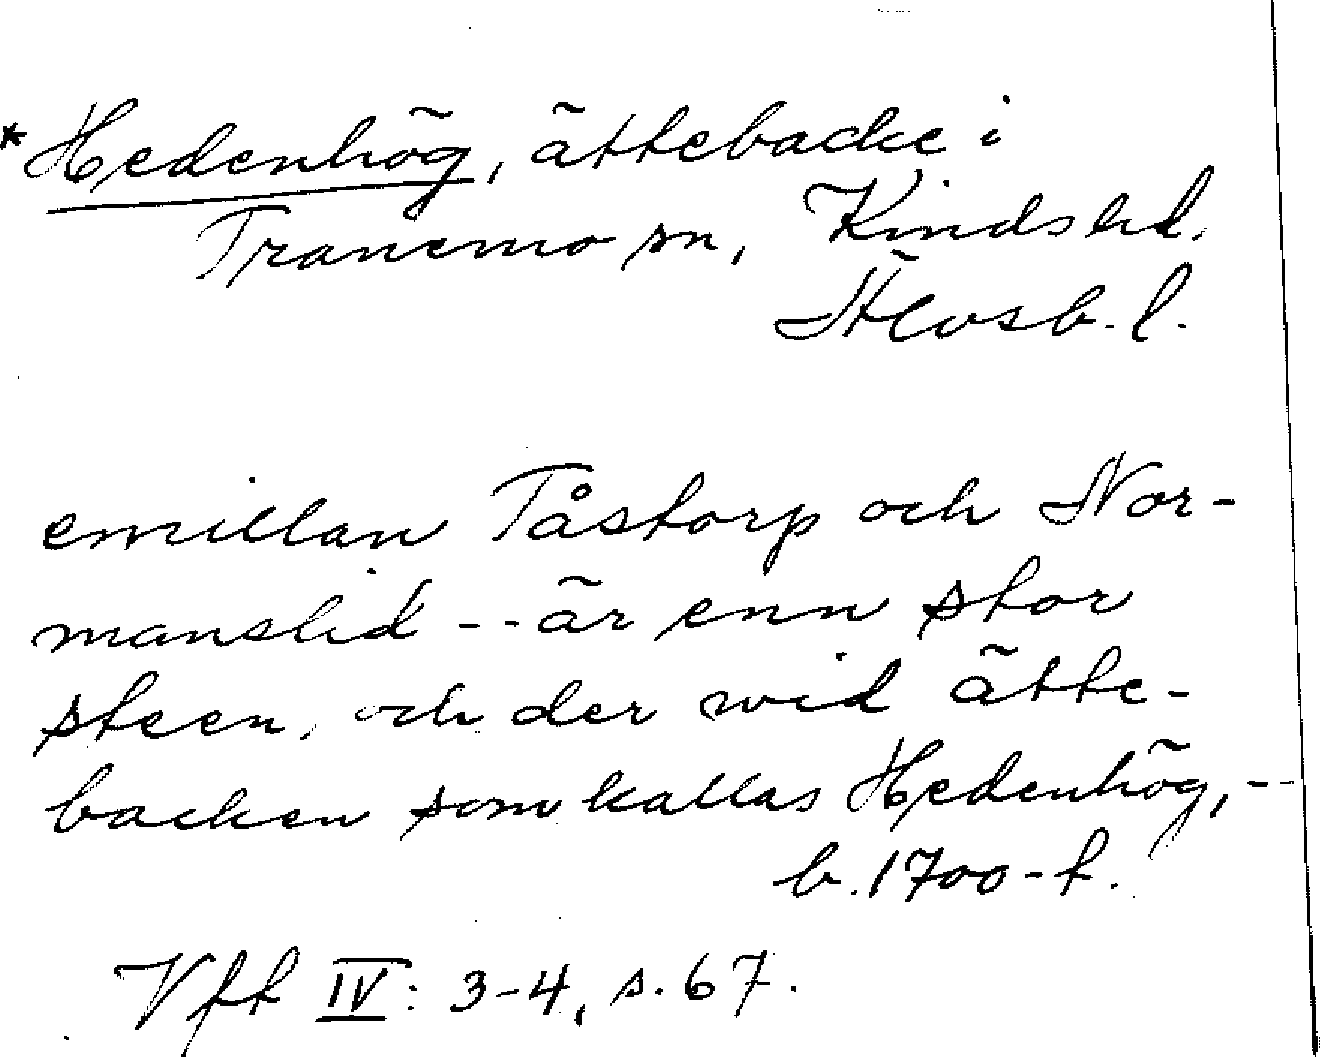 *Hedenhög, ättebacke i
Tranemo sn, Kinds hd.
Älvsb. l.
emillan Tåstorp och Nor-
manslid -- är enn stor
steen, och der wid ätte-
backen som kallas Hedenhög, --
b. 1700-t.
Vft IV: 3-4, s. 67.